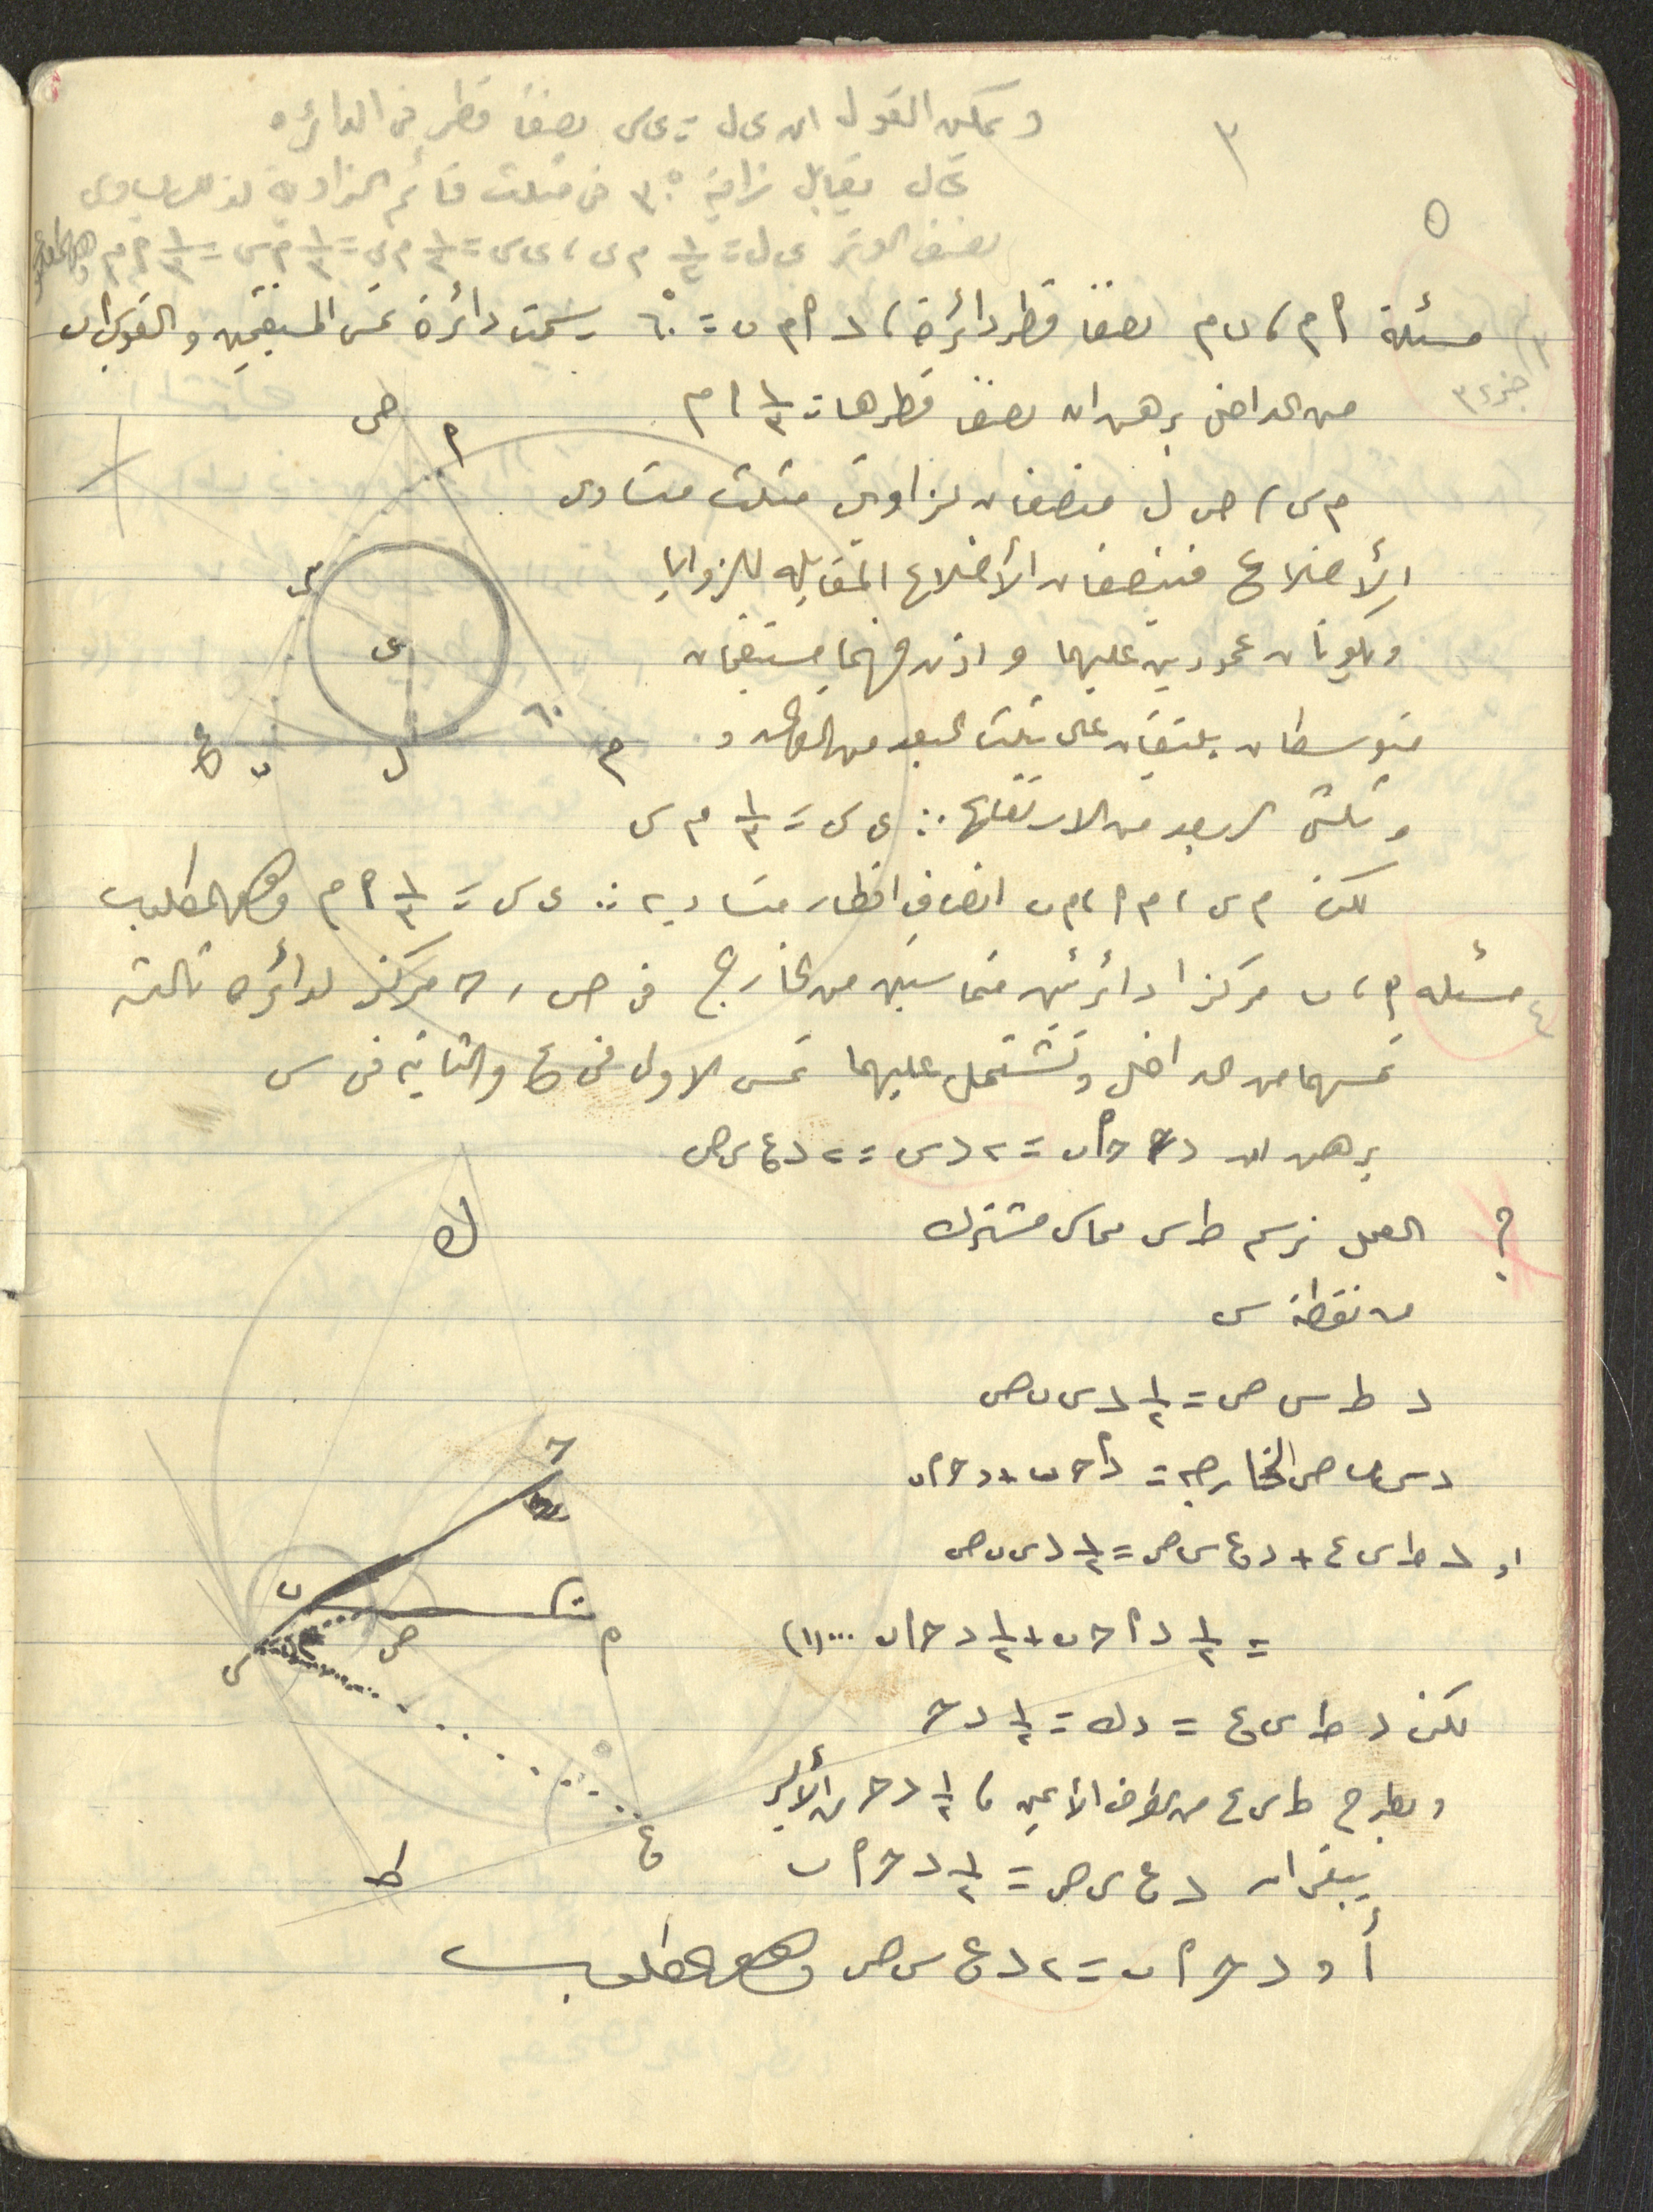 ويمكن القول ان ى ل = ى س نصفا قطر فى الدائره
٣
ى ل يقابل زاوية ٣٠° فى مثلث قائم الزاوية
٥
نصف الوتر ى ل = ١/٢ م ى ، ى س = ١/٢ م ى = ١/٣ م س = ١/٣ ا م
مسئلة ا م ، ں م نصفا قطر دائرة ، د ا م ں = ٦٠° رسمت دائرة تمس المستقيمين والقوس ا ں
من الداخل برهن ان نصف قطرها = ١/٣ ا م
م س ، ص ل منصفان لزاويتى مثلث متساوى
الأضلاع فينصفان الأضلاع المقابله للزوايا
ويكونان عمودين عليهما واذن فهما مستقيمان
متوسطان يلتقيان على ثلث البعد من القواعد و
وثلثى البعد من الارتفاع ∴ ى س = ١/٣ م س
لكن م س ، م ا ، م ں انصاف اقطار متساويه ∴ ى س = ١/٣ ا م وهو المطلوب
مسئله ا ، ں مركزا دائرتين متماستين من الخارج فى ص ، ح مركز لدائره ثالثة
٤
تمسهما من الداخل وتشتمل عليهما تمس الاولى فى ع والثانيه فى س
برهن ان د ح ا ں = ٢ د س = ٢ د ع س ص
العمل نرسم ط س مماس مشترك
؟
من نقطة س
د ط س ص = ١/٢ د س ں ص
د س ں ص الخارجيه = د ا ح ں + د ح ا ں
او د ط س ع + د ع س ص = ١/٢ د س ں ص
= ١/٢ د ا ح ں + ١/٢ د ح ا ں ... (١)
لكن د ط س ع = د ك = ١/٢ د ح
وبطرح ط س ع من الطرف الأيمن ، ١/٢ د ح من الأيسر
يبقى ان د ع س ص = ١/٢ د ح ا ں
أو د ح ا ں = ٢ د ع س ص وهو المطلوب
ص
ا
س
ى
٦٠
ع
ں
ل
م
ك
ح
ں
ا
ص
س
ع
ط